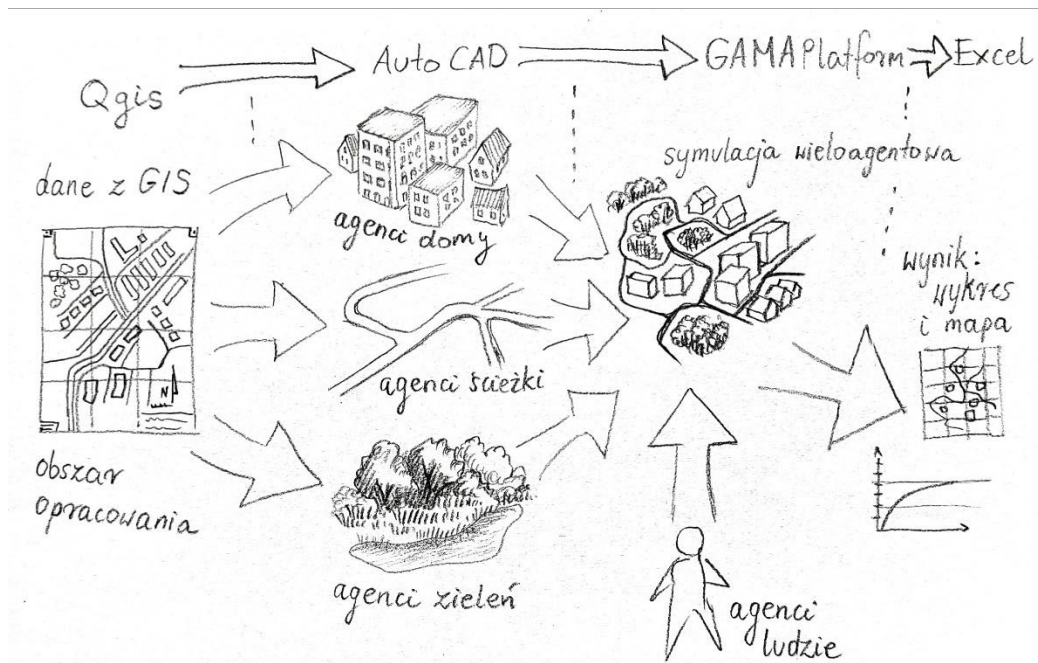 Qgis
AutoCAD
GAMAPlatform
Excel
dane z GIS
agenci domy
symulacja wieloagentowa
wynik:
wykres
i mapa
agenci ścieżki
N
obszar
opracowania
agenci zieleń
agenci
ludzie